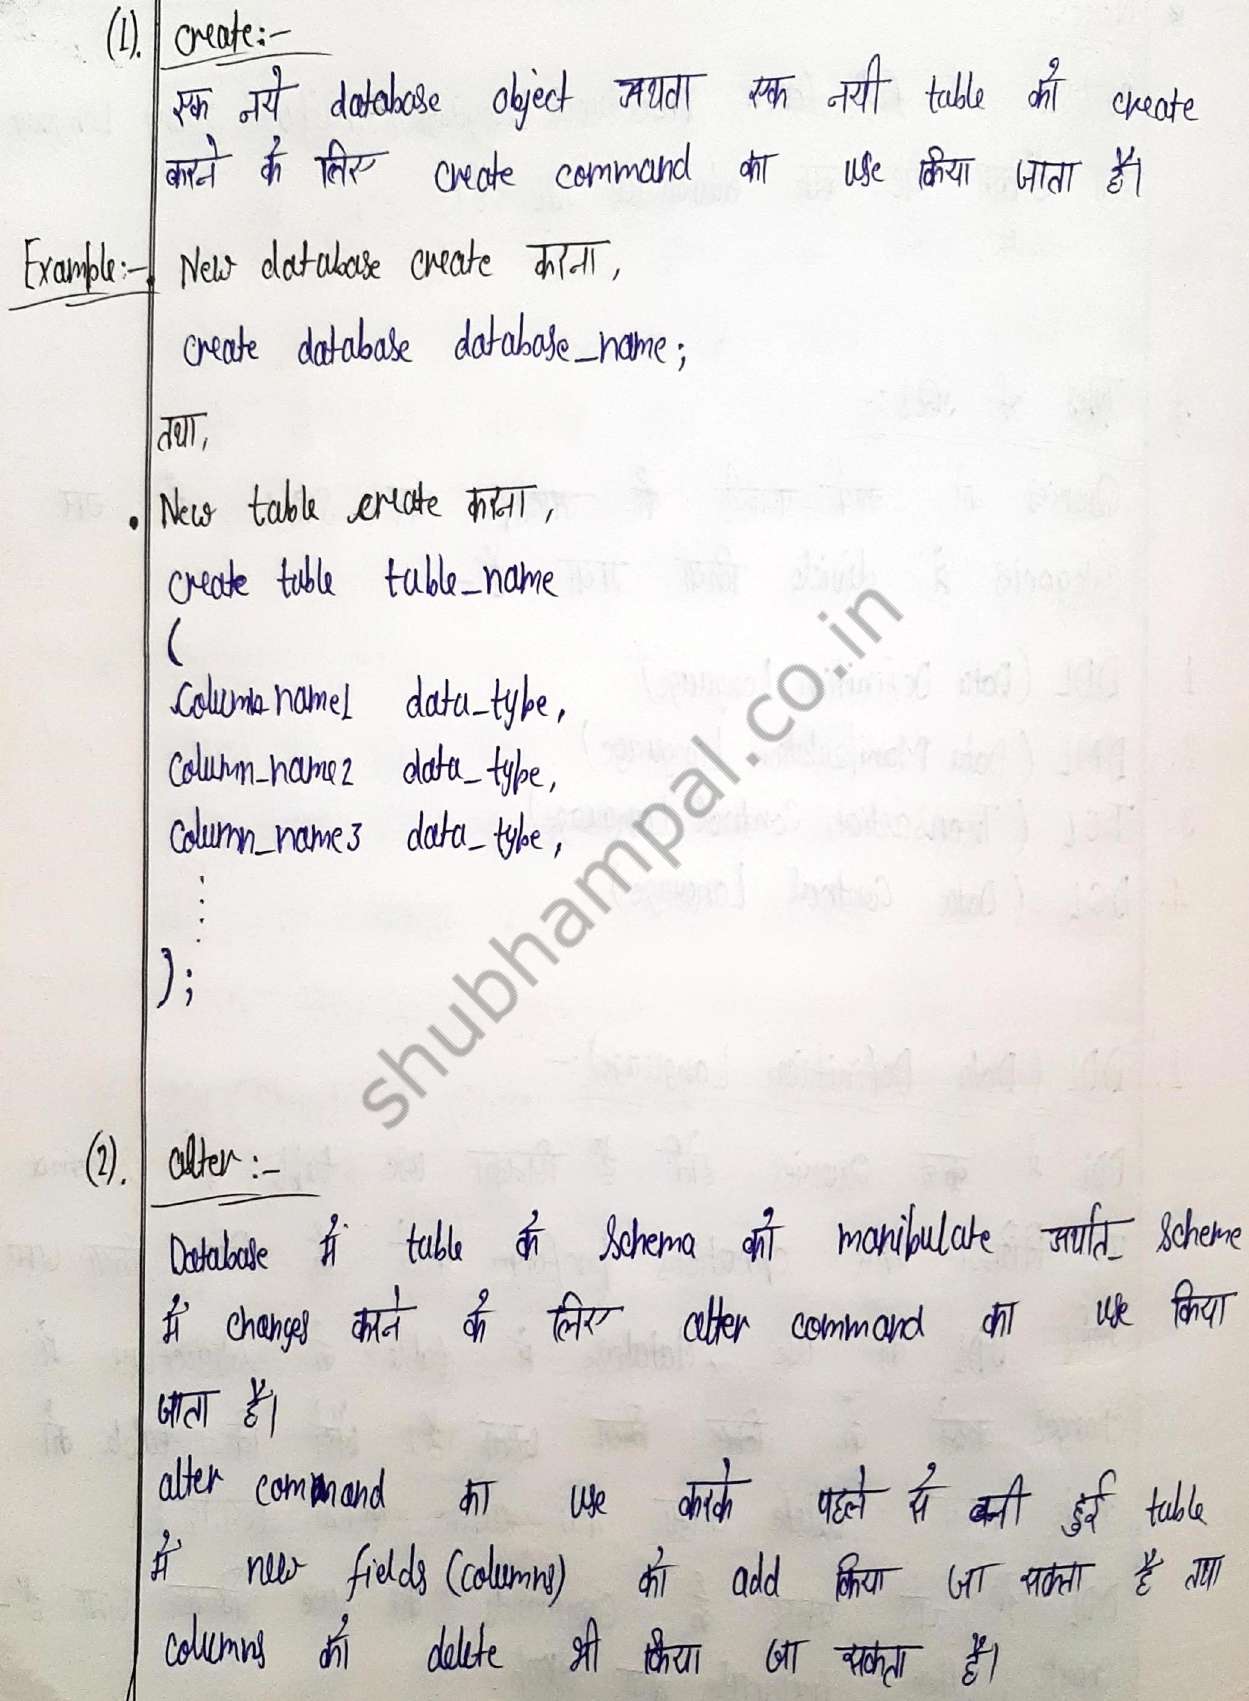 (1). create:-
एक नये database object अथवा एक नयी table को create
करने के लिए create command का use किया जाता है।
Example:- • New database create करना,
create database database_name;
तथा,
• New table create करना,
create table table_name
(
column_name1 data_type,
column_name2 data_type,
column_name3 data_type,
);
(2). alter:-
Database में table के schema को manipulate अर्थात scheme
में changes करने के लिए alter command का use किया
जाता है।
alter command का use करके पहले से बनी हुई table
में new fields (columns) को add किया जा सकता है तथा
columns को delete भी किया जा सकता है।
shubhampal.co.in